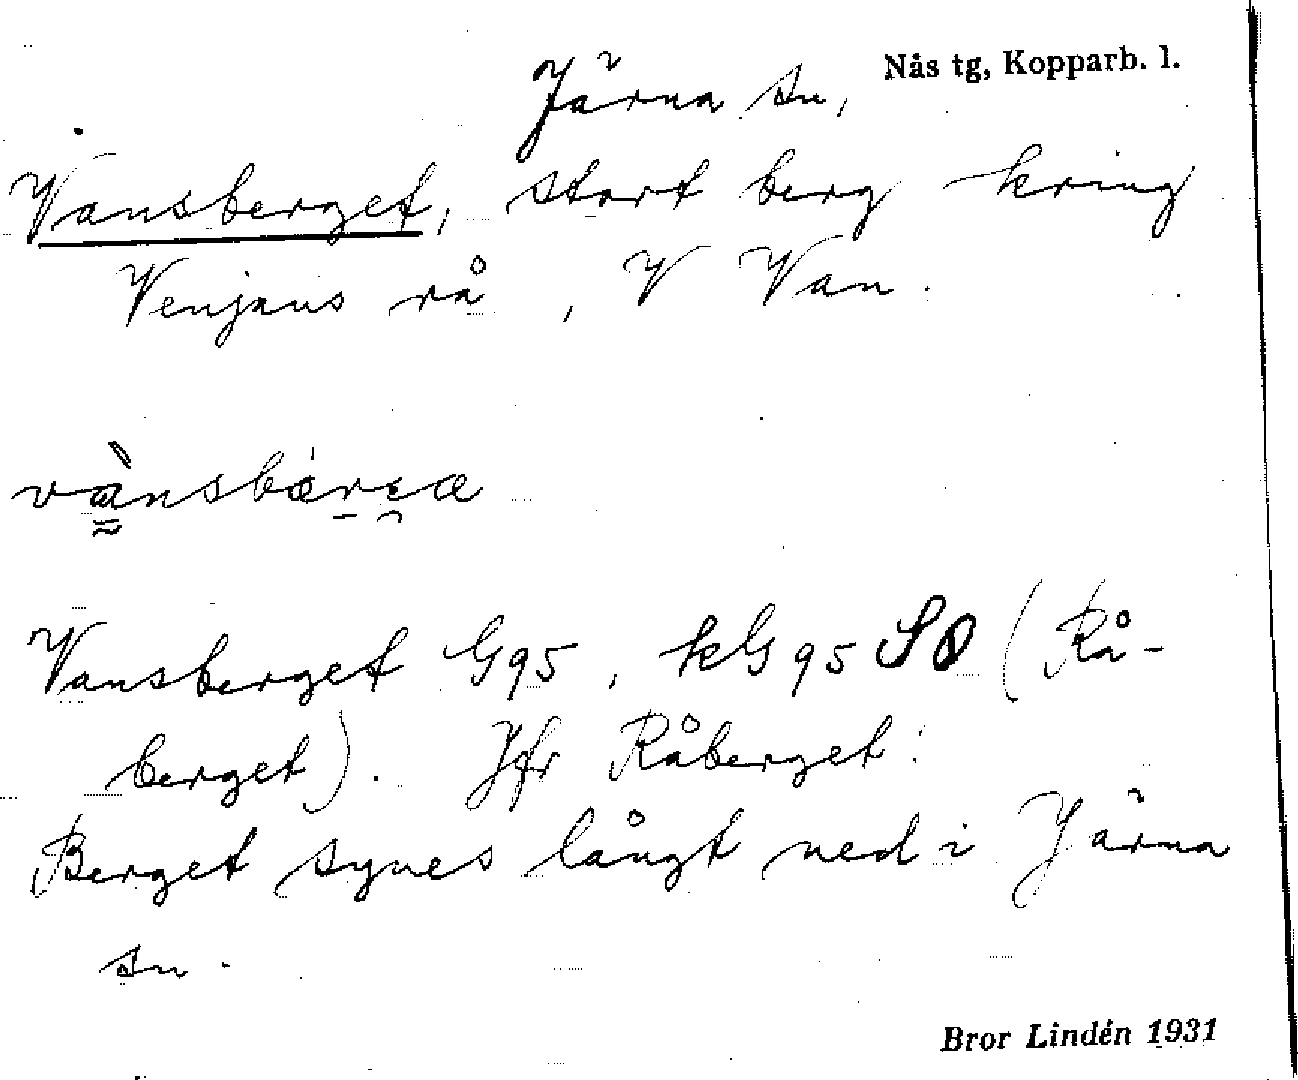 Järna sn, Nås tg, Kopparb. l.
Vansberget, stort berg kring
Venjans rå, V Van.
Vansberget G95, kG95 SO (Rå-
berget). Jfr Råberget.
Berget synes långt ned i Järna
sn.
Bror Lindén 1931